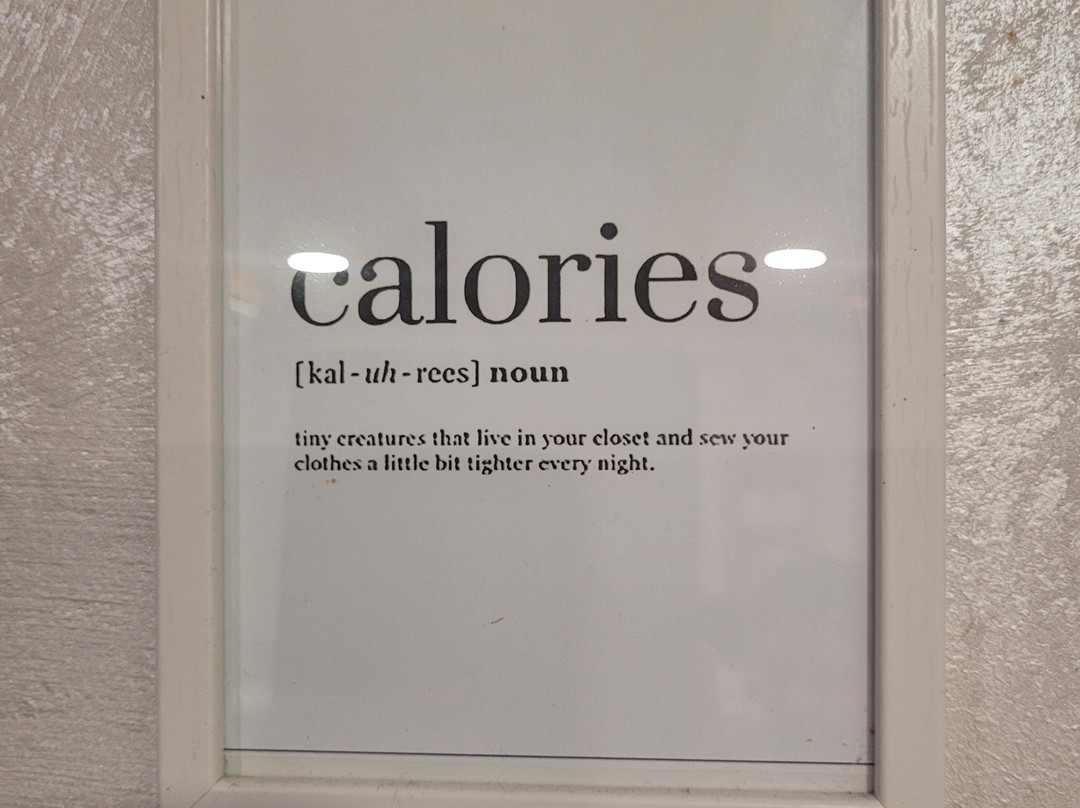 calories
[kal-uh-rees] noun
tiny creatures that live in your closet and sew your
clothes a little bit tighter every night.